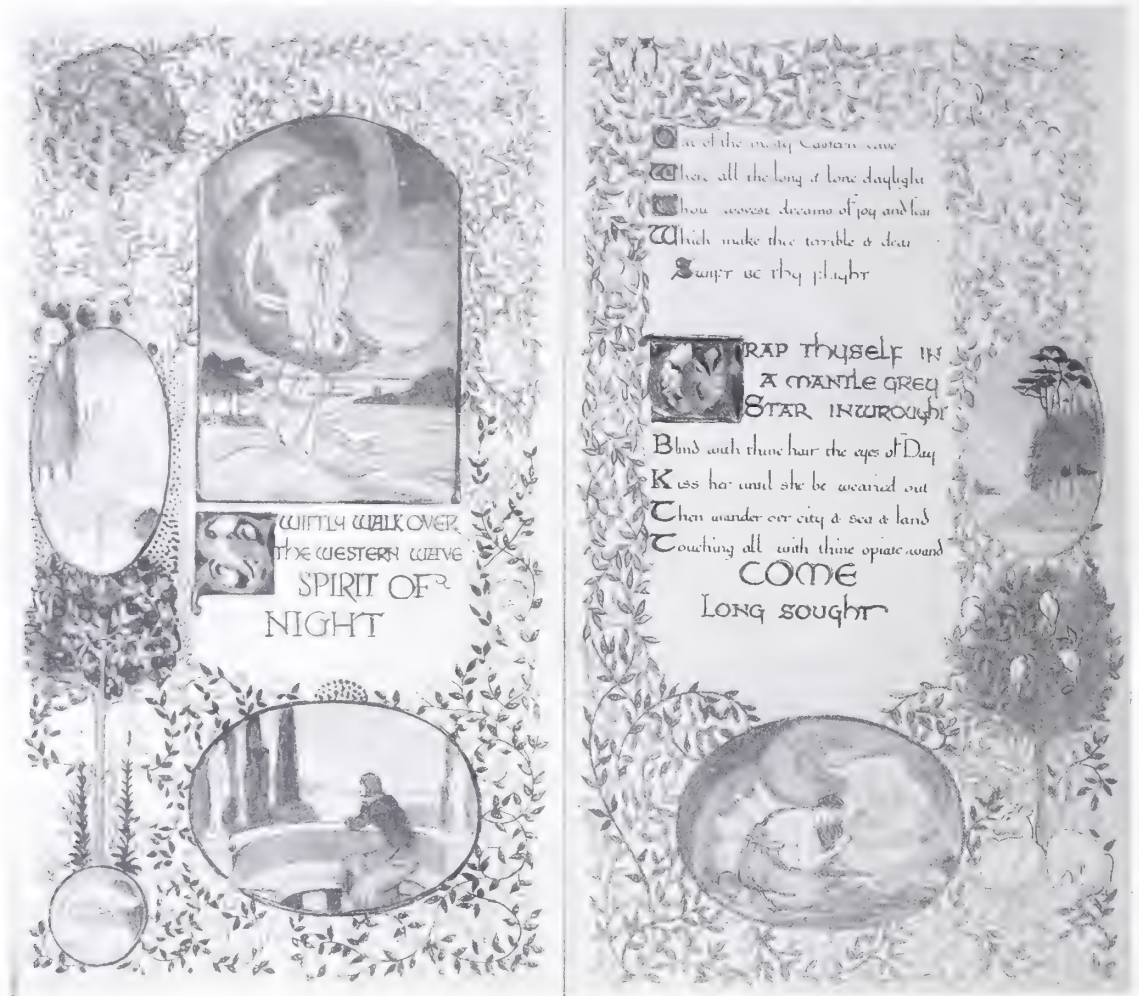 SWIFTLY WALK OVER
THE WESTERN WAVE
SPIRIT OF
NIGHT
Out of the misty Eastern cave
Where all the long & lone daylight
Thou wovest dreams of joy and fear
Which make thee terrible & dear
Swift be thy flight
WRAP Thyself in
a mantle grey
Star inwrought
Blind with thine hair the eyes of Day
Kiss her until she be wearied out
Then wander oer city & sea & land
Touching all with thine opiate wand
COME
Long sought